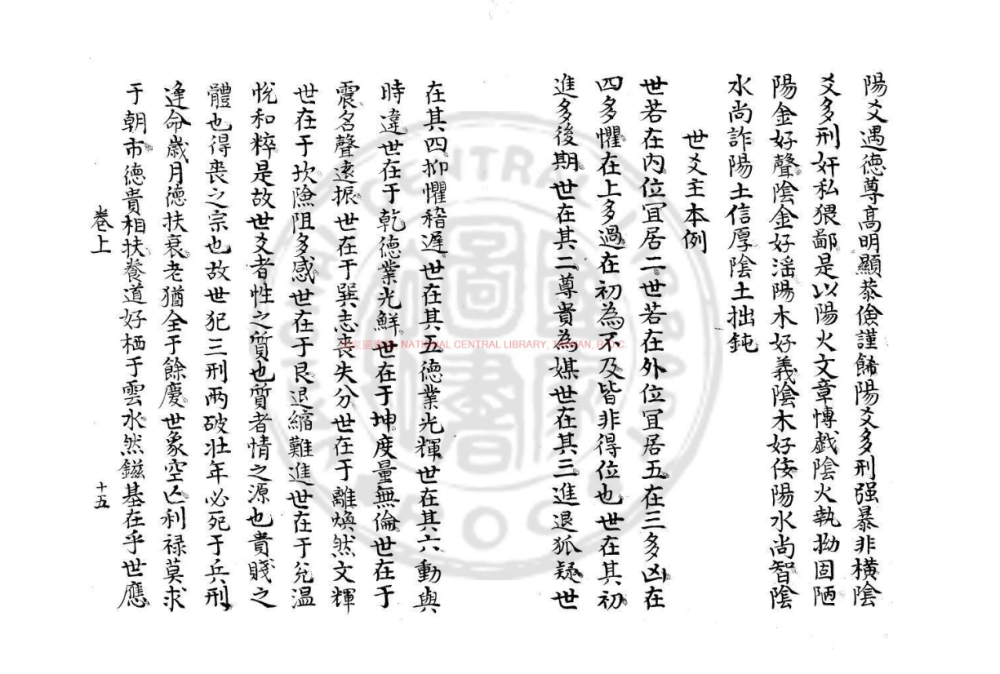 陽爻遇德尊高明顯恭儉謹餙陽爻多刑强暴非橫陰
爻多刑奸私猥鄙是以陽火文章博戲陰火執拗固陋
陽金好聲陰金好滛陽木好義陰木好侫陽水尚智陰
水尚詐陽土信厚陰土拙鈍
世爻主本例
世若在內位冝居二世若在外位冝居五在三多凶在
四多懼在上多過在初為不及皆非得位也世在其初
進多後期世在其二尊貴為媒世在其三進退狐疑世
在其四抑懼稽遲世在其五德業光輝世在其六動與
時違世在于乾德業光鮮世在于坤度量無倫世在于
震名聲遠振世在于巽志喪失分世在于離煥然文輝
世在于坎險阻多感世在于艮退縮難進世在于兊溫
恱和粹是故世爻者性之質也質者情之源也貴賤之
體也得喪之宗也故世犯三刑两破壮年必死于兵刑
逢命歲月德扶衰老猶全于餘慶世象空亾利禄莫求
于朝市德貴相扶養道好栖于雲水然鎡基在乎世應
卷上
十五
NATIONAL CENTRAL LIBRARY, TAIWAN, R.O.C.